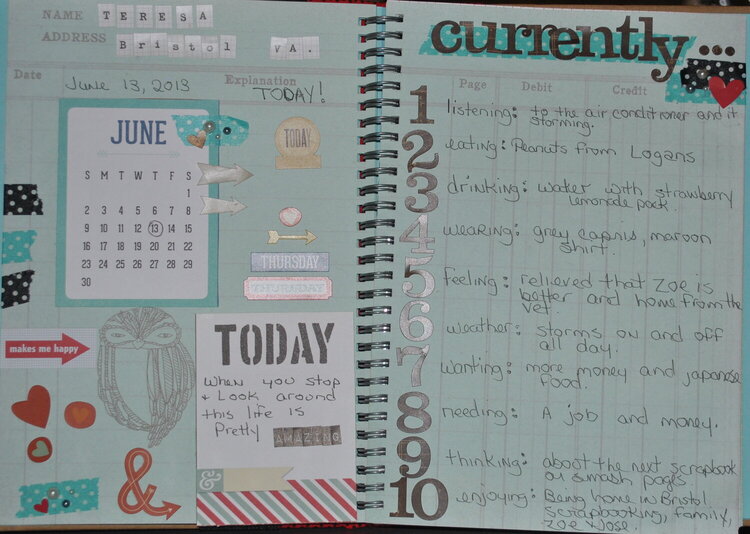 NAME TERESA
ADDRESS Bristol VA.
Date June 13, 2013 Explanation TODAY!
JUNE
S M T W T F S
1
2 3 4 5 6 7 8
9 10 11 12 13 14 15
16 17 18 19 20 21 22
23 24 25 26 27 28 29
30
TODAY
THURSDAY
THURSDAY
makes me happy
&
TODAY
When you stop
+ Look around
this life is
Pretly AMAZING
&
currently...
Page Debit Credit
1 listening: to the air conditioner and it
storming.
2 eating: Peanuts from Logans
3 drinking: water with strawberry
lemonade pack.
4 wearing: grey capris, maroon
shirt.
5 feeling: relieved that Zoe is
better and home from the
vet.
6 weather: storms on and off
all day.
7 wanting: more money and japanese
food.
8 needing: A job and money.
9 thinking: about the next scrapbook
or smash pages
10 enjoying: Being home in Bristol
scrapbooking, family,
Zoe Nose.